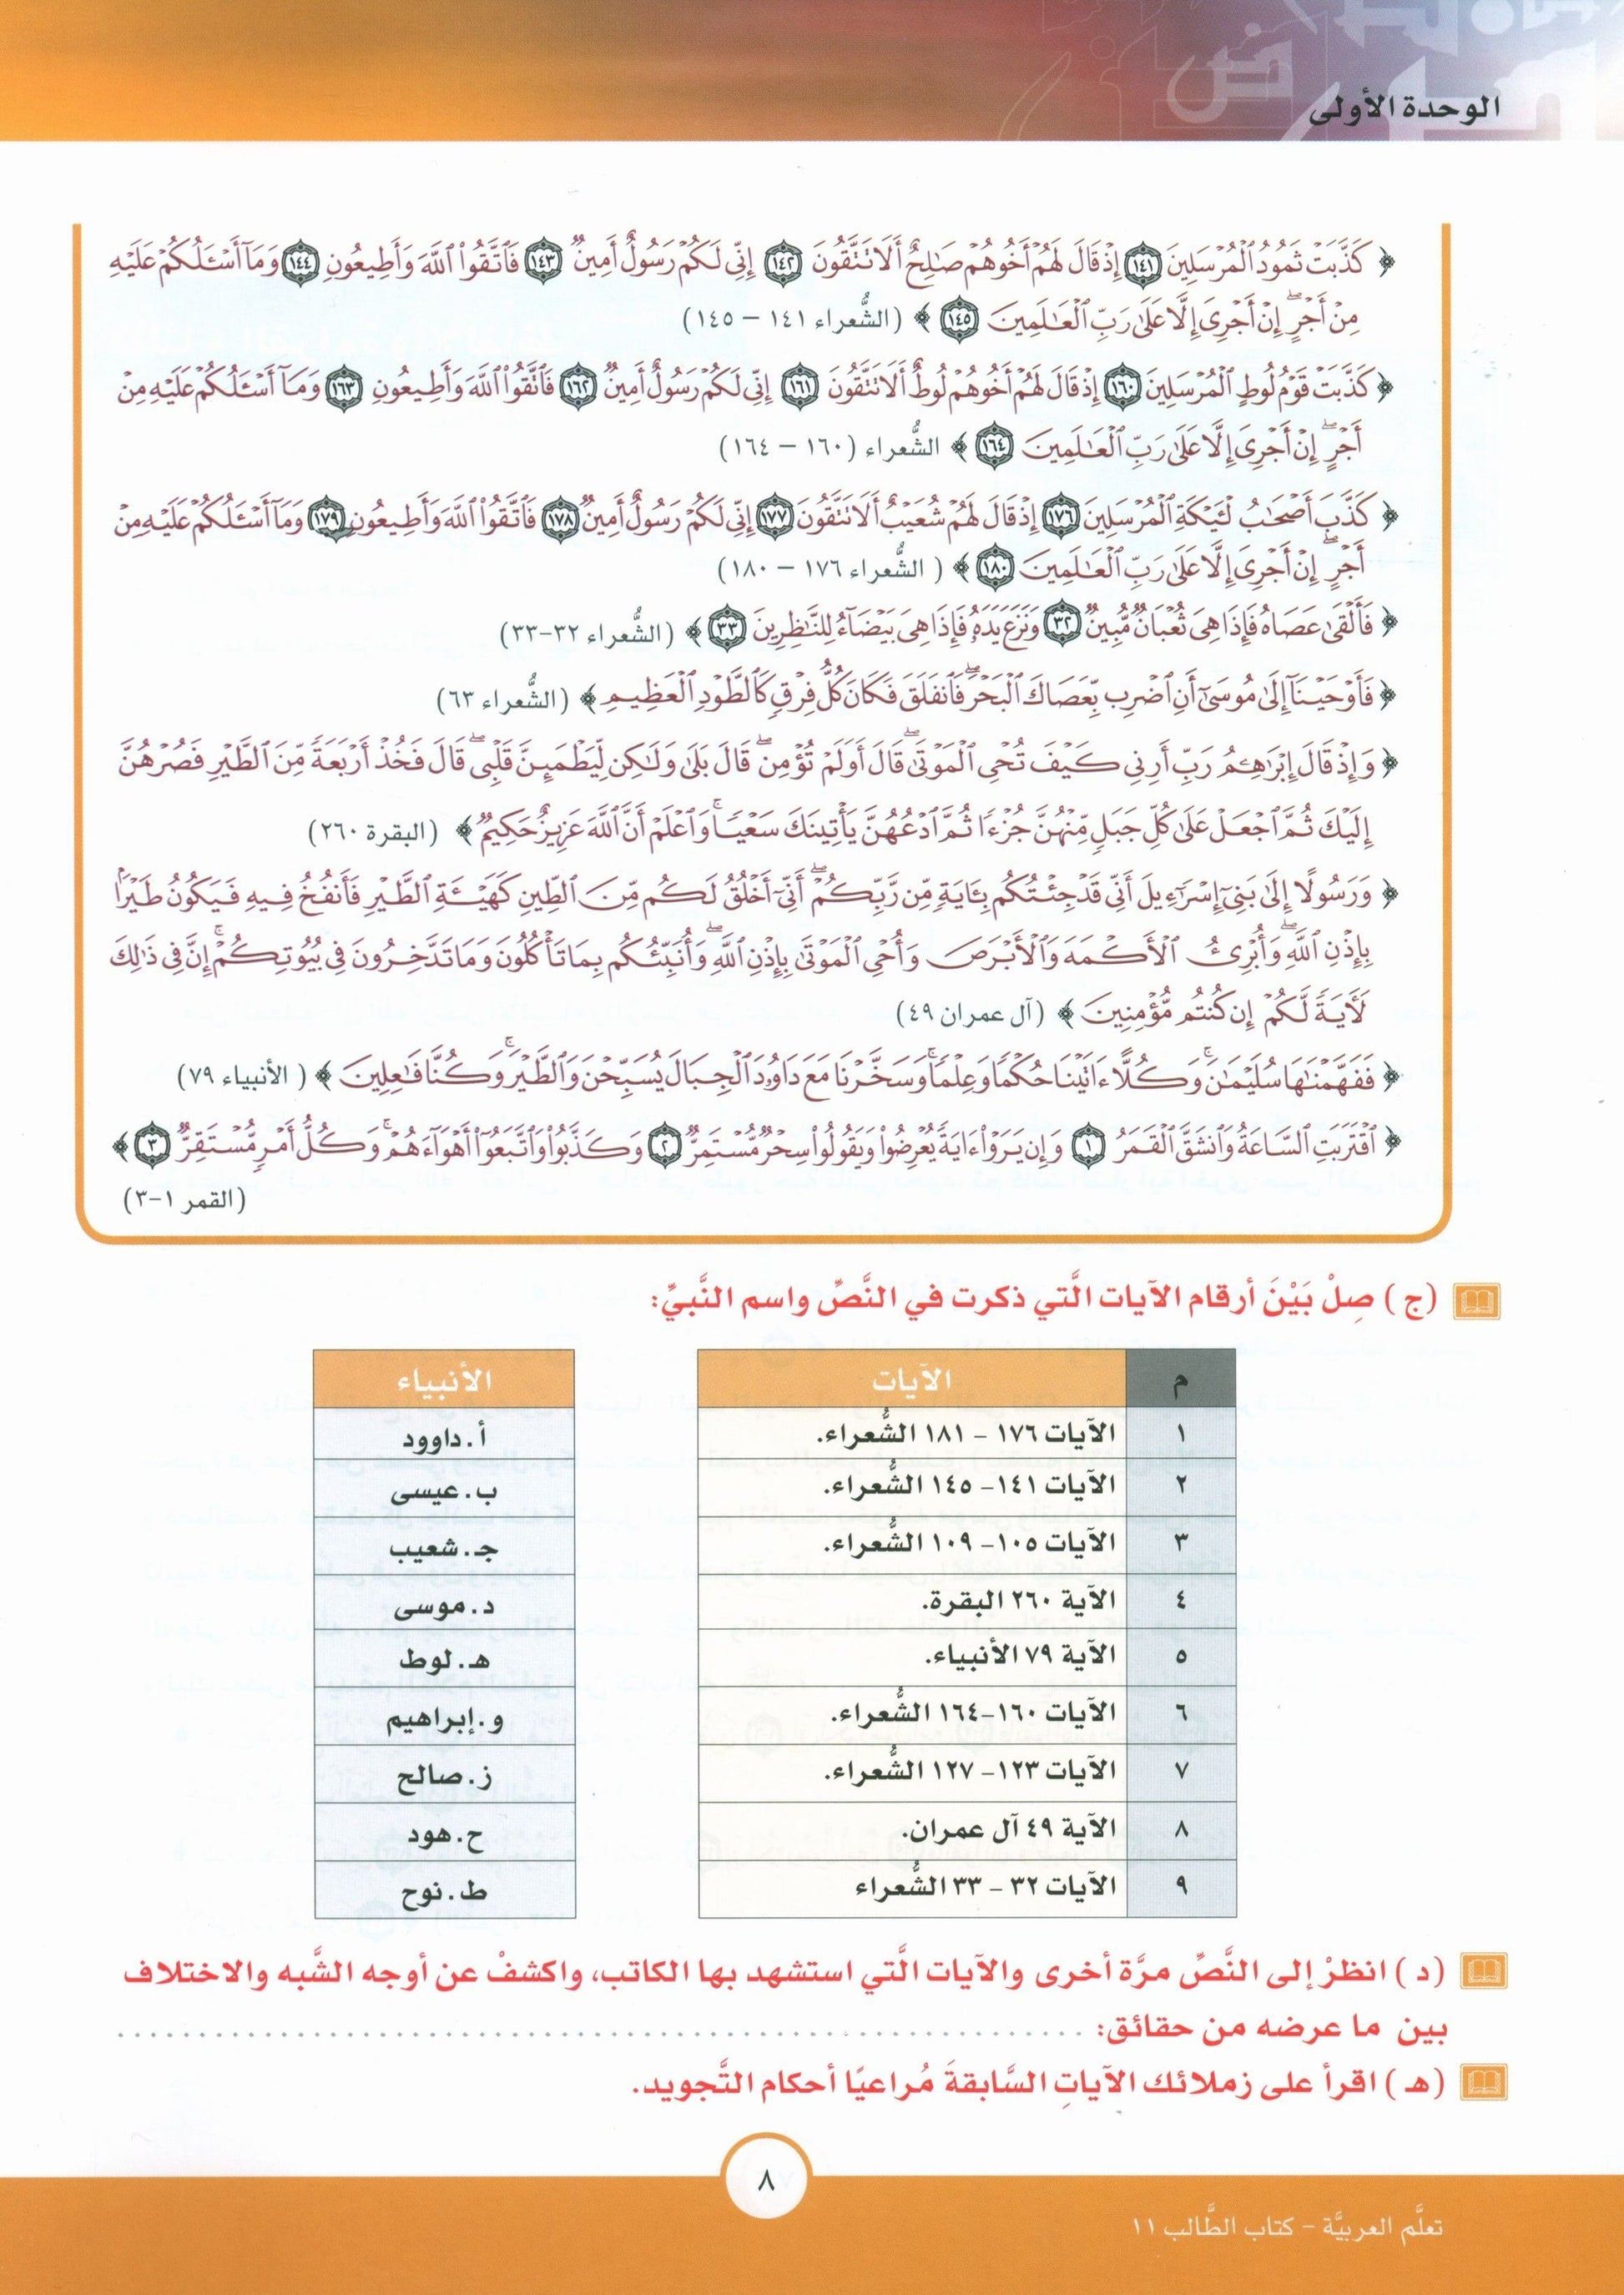 الوحدة الأولى
﴿ كَذَّبَتْ ثَمُودُ ٱلْمُرْسَلِينَ ١٤١ إِذْ قَالَ لَهُمْ أَخُوهُمْ صَٰلِحٌ أَلَا تَتَّقُونَ ١٤٢ إِنِّي لَكُمْ رَسُولٌ أَمِينٌ ١٤٣ فَٱتَّقُوا۟ ٱللَّهَ وَأَطِيعُونِ ١٤٤ وَمَآ أَسْـَٔلُكُمْ عَلَيْهِ
مِنْ أَجْرٍ ۖ إِنْ أَجْرِىَ إِلَّا عَلَىٰ رَبِّ ٱلْعَٰلَمِينَ ١٤٥ ﴾ (الشُّعراء ١٤١ – ١٤٥)
﴿ كَذَّبَتْ قَوْمُ لُوطٍ ٱلْمُرْسَلِينَ ١٦٠ إِذْ قَالَ لَهُمْ أَخُوهُمْ لُوطٌ أَلَا تَتَّقُونَ ١٦١ إِنِّي لَكُمْ رَسُولٌ أَمِينٌ ١٦٢ فَٱتَّقُوا۟ ٱللَّهَ وَأَطِيعُونِ ١٦٣ وَمَآ أَسْـَٔلُكُمْ عَلَيْهِ مِنْ
أَجْرٍ ۖ إِنْ أَجْرِىَ إِلَّا عَلَىٰ رَبِّ ٱلْعَٰلَمِينَ ١٦٤ ﴾ الشُّعراء (١٦٠ – ١٦٤)
﴿ كَذَّبَ أَصْحَٰبُ لْـَٔيْكَةِ ٱلْمُرْسَلِينَ ١٧٦ إِذْ قَالَ لَهُمْ شُعَيْبٌ أَلَا تَتَّقُونَ ١٧٧ إِنِّي لَكُمْ رَسُولٌ أَمِينٌ ١٧٨ فَٱتَّقُوا۟ ٱللَّهَ وَأَطِيعُونِ ١٧٩ وَمَآ أَسْـَٔلُكُمْ عَلَيْهِ مِنْ
أَجْرٍ ۖ إِنْ أَجْرِىَ إِلَّا عَلَىٰ رَبِّ ٱلْعَٰلَمِينَ ١٨٠ ﴾ ( الشُّعراء ١٧٦ – ١٨٠)
﴿ فَأَلْقَىٰ عَصَاهُ فَإِذَا هِىَ ثُعْبَانٌ مُّبِينٌ ٣٢ وَنَزَعَ يَدَهُۥ فَإِذَا هِىَ بَيْضَآءُ لِلنَّٰظِرِينَ ٣٣ ﴾ (الشُّعراء ٣٢-٣٣)
﴿ فَأَوْحَيْنَآ إِلَىٰ مُوسَىٰٓ أَنِ ٱضْرِب بِّعَصَاكَ ٱلْبَحْرَ ۖ فَٱنفَلَقَ فَكَانَ كُلُّ فِرْقٍ كَٱلطَّوْدِ ٱلْعَظِيمِ ﴾ (الشُّعراء ٦٣)
﴿ وَإِذْ قَالَ إِبْرَٰهِـۧمُ رَبِّ أَرِنِى كَيْفَ تُحْىِ ٱلْمَوْتَىٰ ۖ قَالَ أَوَلَمْ تُؤْمِن ۖ قَالَ بَلَىٰ وَلَٰكِن لِّيَطْمَئِنَّ قَلْبِى ۖ قَالَ فَخُذْ أَرْبَعَةً مِّنَ ٱلطَّيْرِ فَصُرْهُنَّ
إِلَيْكَ ثُمَّ ٱجْعَلْ عَلَىٰ كُلِّ جَبَلٍ مِّنْهُنَّ جُزْءًا ثُمَّ ٱدْعُهُنَّ يَأْتِينَكَ سَعْيًا ۚ وَٱعْلَمْ أَنَّ ٱللَّهَ عَزِيزٌ حَكِيمٌ ﴾ (البقرة ٢٦٠)
﴿ وَرَسُولًا إِلَىٰ بَنِىٓ إِسْرَٰٓءِيلَ أَنِّى قَدْ جِئْتُكُم بِـَٔايَةٍ مِّن رَّبِّكُمْ ۖ أَنِّىٓ أَخْلُقُ لَكُم مِّنَ ٱلطِّينِ كَهَيْـَٔةِ ٱلطَّيْرِ فَأَنفُخُ فِيهِ فَيَكُونُ طَيْرًۢا
بِإِذْنِ ٱللَّهِ ۖ وَأُبْرِئُ ٱلْأَكْمَهَ وَٱلْأَبْرَصَ وَأُحْىِ ٱلْمَوْتَىٰ بِإِذْنِ ٱللَّهِ ۖ وَأُنَبِّئُكُم بِمَا تَأْكُلُونَ وَمَا تَدَّخِرُونَ فِى بُيُوتِكُمْ ۚ إِنَّ فِى ذَٰلِكَ
لَـَٔايَةً لَّكُمْ إِن كُنتُم مُّؤْمِنِينَ ﴾ (آل عمران ٤٩)
﴿ فَفَهَّمْنَٰهَا سُلَيْمَٰنَ ۚ وَكُلًّا ءَاتَيْنَا حُكْمًا وَعِلْمًا ۚ وَسَخَّرْنَا مَعَ دَاوُۥدَ ٱلْجِبَالَ يُسَبِّحْنَ وَٱلطَّيْرَ ۚ وَكُنَّا فَٰعِلِينَ ﴾ ( الأنبياء ٧٩)
﴿ ٱقْتَرَبَتِ ٱلسَّاعَةُ وَٱنشَقَّ ٱلْقَمَرُ ١ وَإِن يَرَوْا۟ ءَايَةً يُعْرِضُوا۟ وَيَقُولُوا۟ سِحْرٌ مُّسْتَمِرٌّ ٢ وَكَذَّبُوا۟ وَٱتَّبَعُوٓا۟ أَهْوَآءَهُمْ ۚ وَكُلُّ أَمْرٍ مُّسْتَقِرٌّ ٣ ﴾
(القمر ١-٣)
(ج ) صِلْ بَيْنَ أرقام الآيات الَّتي ذكرت في النَّصِّ واسم النَّبيِّ:
م الآيات الأنبياء
١ الآيات ١٧٦ – ١٨١ الشُّعراء. أ. داوود
٢ الآيات ١٤١– ١٤٥ الشُّعراء. ب. عيسى
٣ الآيات ١٠٥– ١٠٩ الشُّعراء. جـ. شعيب
٤ الآية ٢٦٠ البقرة. د. موسى
٥ الآية ٧٩ الأنبياء. هـ. لوط
٦ الآيات ١٦٠–١٦٤ الشُّعراء. و. إبراهيم
٧ الآيات ١٢٣– ١٢٧ الشُّعراء. ز. صالح
٨ الآية ٤٩ آل عمران. ح. هود
٩ الآيات ٣٢ – ٣٣ الشُّعراء ط. نوح
(د ) انظرْ إلى النَّصِّ مرَّة أخرى والآيات الَّتي استشهد بها الكاتب، واكشفْ عن أوجه الشَّبه والاختلاف
بين ما عرضه من حقائق: ................................................
(هـ ) اقرأ على زملائك الآياتِ السَّابقةَ مُراعيًا أحكام التَّجويد.
٨
تعلَّم العربيَّة – كتاب الطَّالب ١١